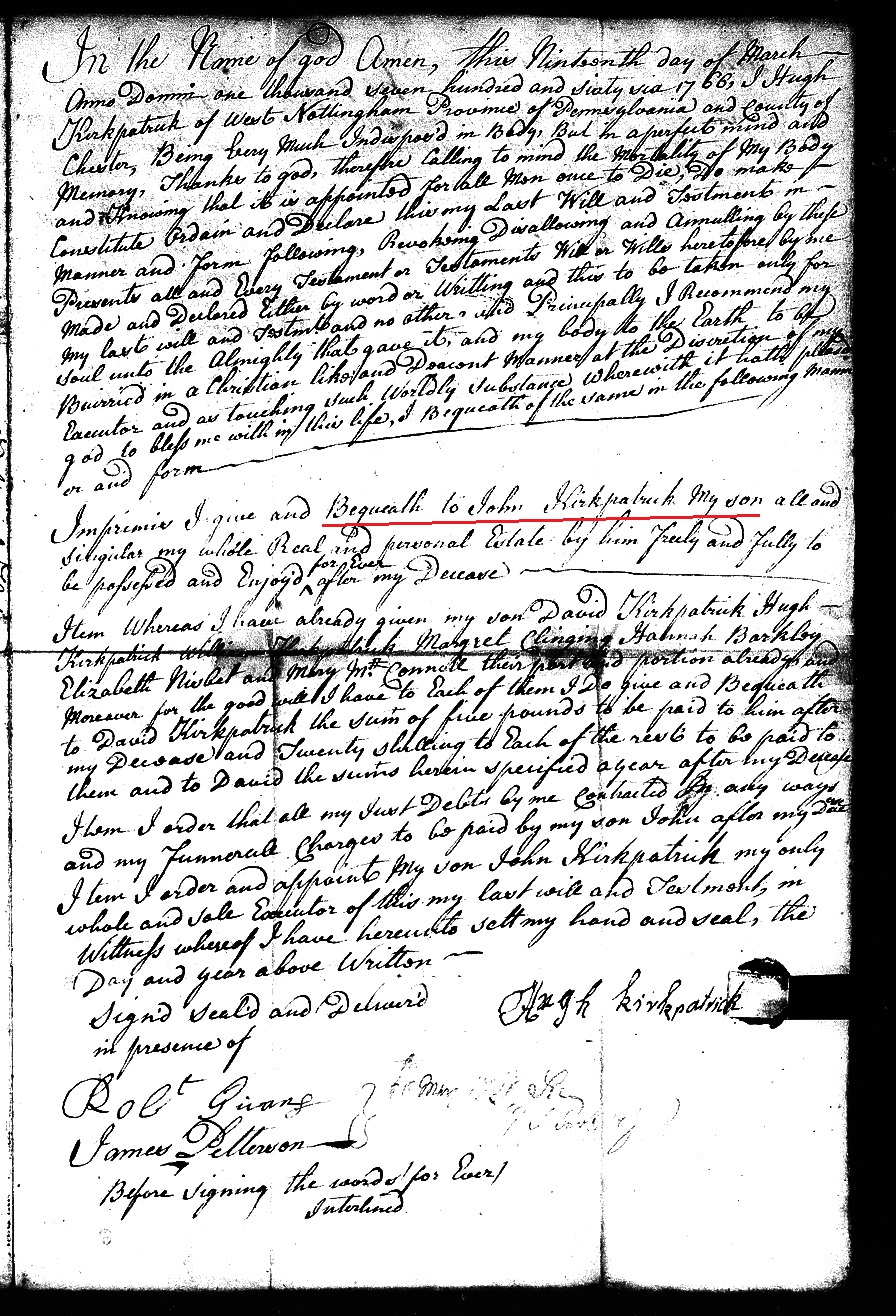 In the Name of god Amen, this Ninteenth day of March
Anno Domini one thousand seven hundred and sixty six 1766, I Hugh
Kirkpatrick of West Nottingham Province of Pennsylvania and County of
Chester, Being Very Much Indispos'd in Body, But in a perfect mind and
Memory, Thanks to god, therefore Calling to mind the Mortality of My Body
and Knowing that it is appointed for all Men once to Die, Do make
Constitute Ordain and Declare this my Last Will and Testment in
Manner and form following, Revokeing Disallowing and Annulling by these
Presents all and Every Testament or Testaments Will or Wills heretofore by me
Made and Declared Either by word or Writting and this to be taken only for
My last will and Testmt and no other, and Principally I Recommend my
soul unto the Almighty that gave it, and my body to the Earth to be
Burried in a Christian like and Deacent Manner at the Discretion of my
Executor and as touching such Worldly substance Wherewith it hath pleased
god to bless me with in this life, I Bequeath of the same in the following Mann
er and form
Imprimis I give and Bequeath to John Kirkpatrick My son all and
singular my whole Real and personal Estate by him Freely and Fully to
for Ever
be possessed and Enjoy'd ^ after my Decease
Item Whereas I have already given my son David Kirkpatrick Hugh
Kirkpatrick William Kirkpatrick Margret Clinging Hannah Barkley
Elizabeth Nisbet and Mary Mc Connell their part and portion already and
Moreover for the good will I have to Each of them I Do give and Bequeath
to David Kirkpatrick the sum of five pounds to be paid to him after
my Decease and Twenty shilling to Each of the rest to be paid to
them and to David the sums herein specified a year after my Decease
Item I order that all my Just Debts by me Contracted In any ways
and my Funnerall Charges to be paid by my son John after my
Item I order and appoint My son John Kirkpatrick my only
whole and sole Executor of this my last will and Testment, in
Wittness whereof I have hereunto sett my hand and seal, the
Day and year above Written
Sign'd Seal'd and Deliver'd
in presence of
Hugh Kirkpatrick
Robt
James Petterson
Before signing the words for Ever
Interlined